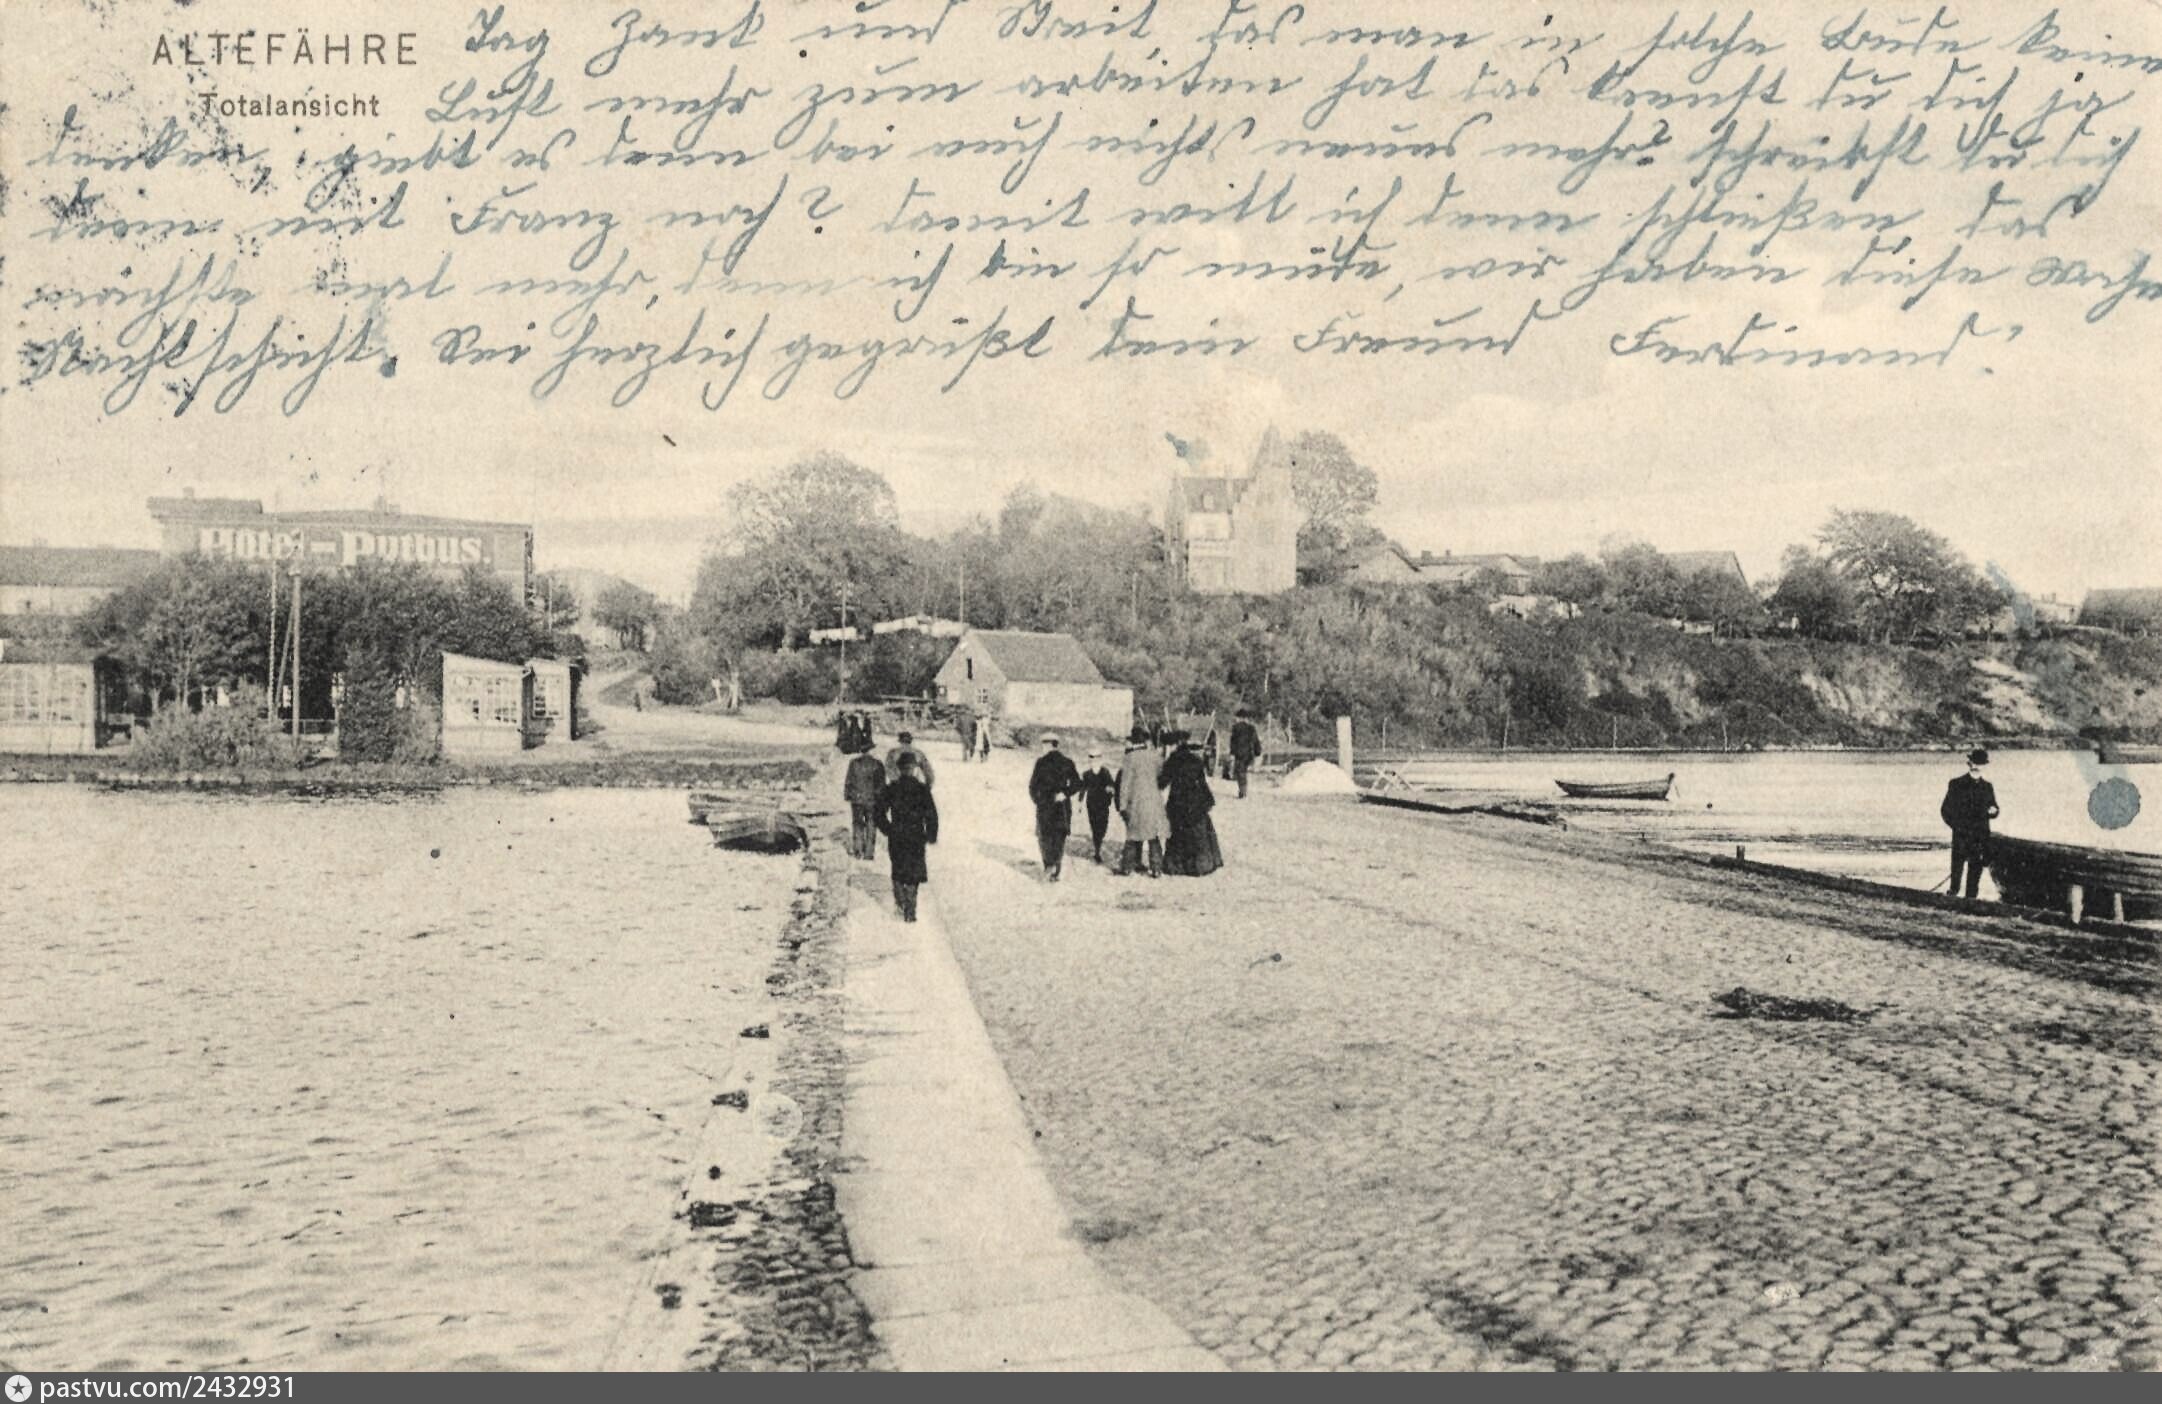 ALTEFÄHRE
Totalansicht
Tag Zank und Streit, das man in solche Bude keine
Luft mehr zum arbeiten hat das kannst du dich ja
denken, giebt es denn bei euch nichts neues mehr? schreibst du dich
denn mit Franz noch? damit will ich denn schließen, das
nächste mal mehr, denn ich bin so müde, wir haben diese Woche
Nachtschicht. Sei herzlich gegrüßt dein Freund Ferdinand!
Hotel-Putbus.
pastvu.com/2432931